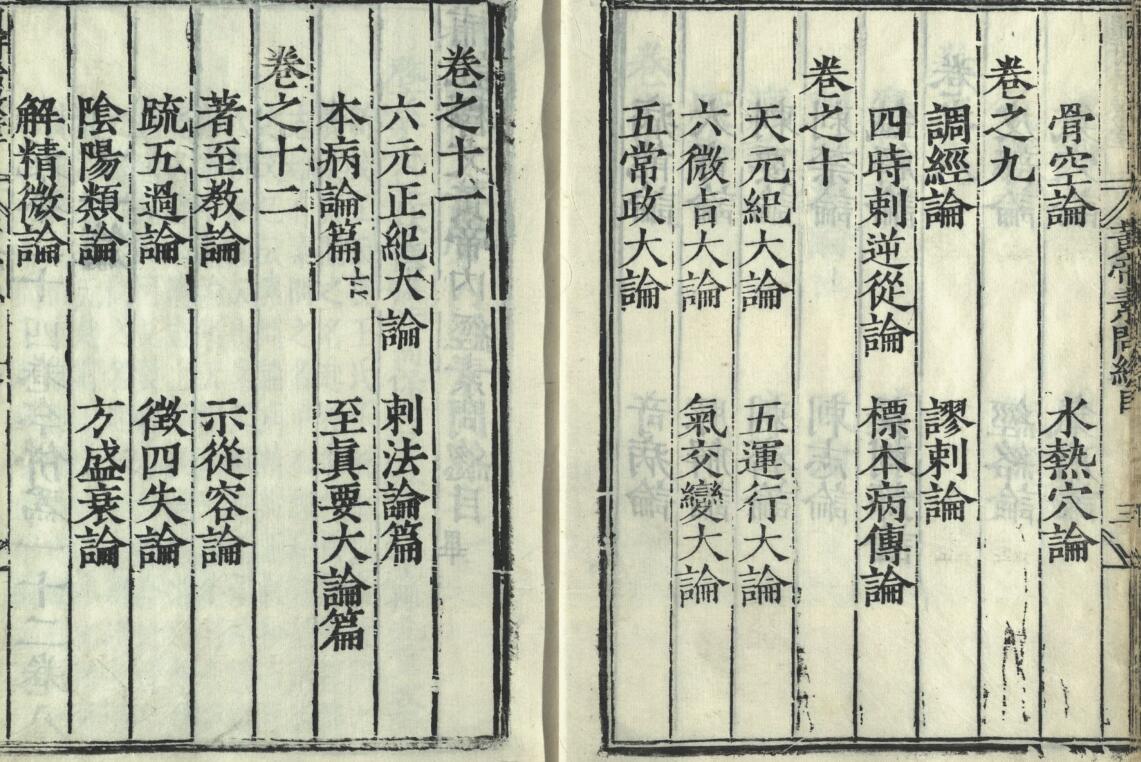 黃帝素問總目
骨空論 水熱穴論
卷之九
調經論 謬刺論
四時刺逆從論 標本病傳論
卷之十
天元紀大論 五運行大論
六微旨大論 氣交變大論
五常政大論
卷之十一
六元正紀大論 刺法論篇
本病論篇亡 至眞要大論篇
卷之十二
著至教論 示從容論
疏五過論 徵四失論
陰陽類論 方盛衰論
解精微論